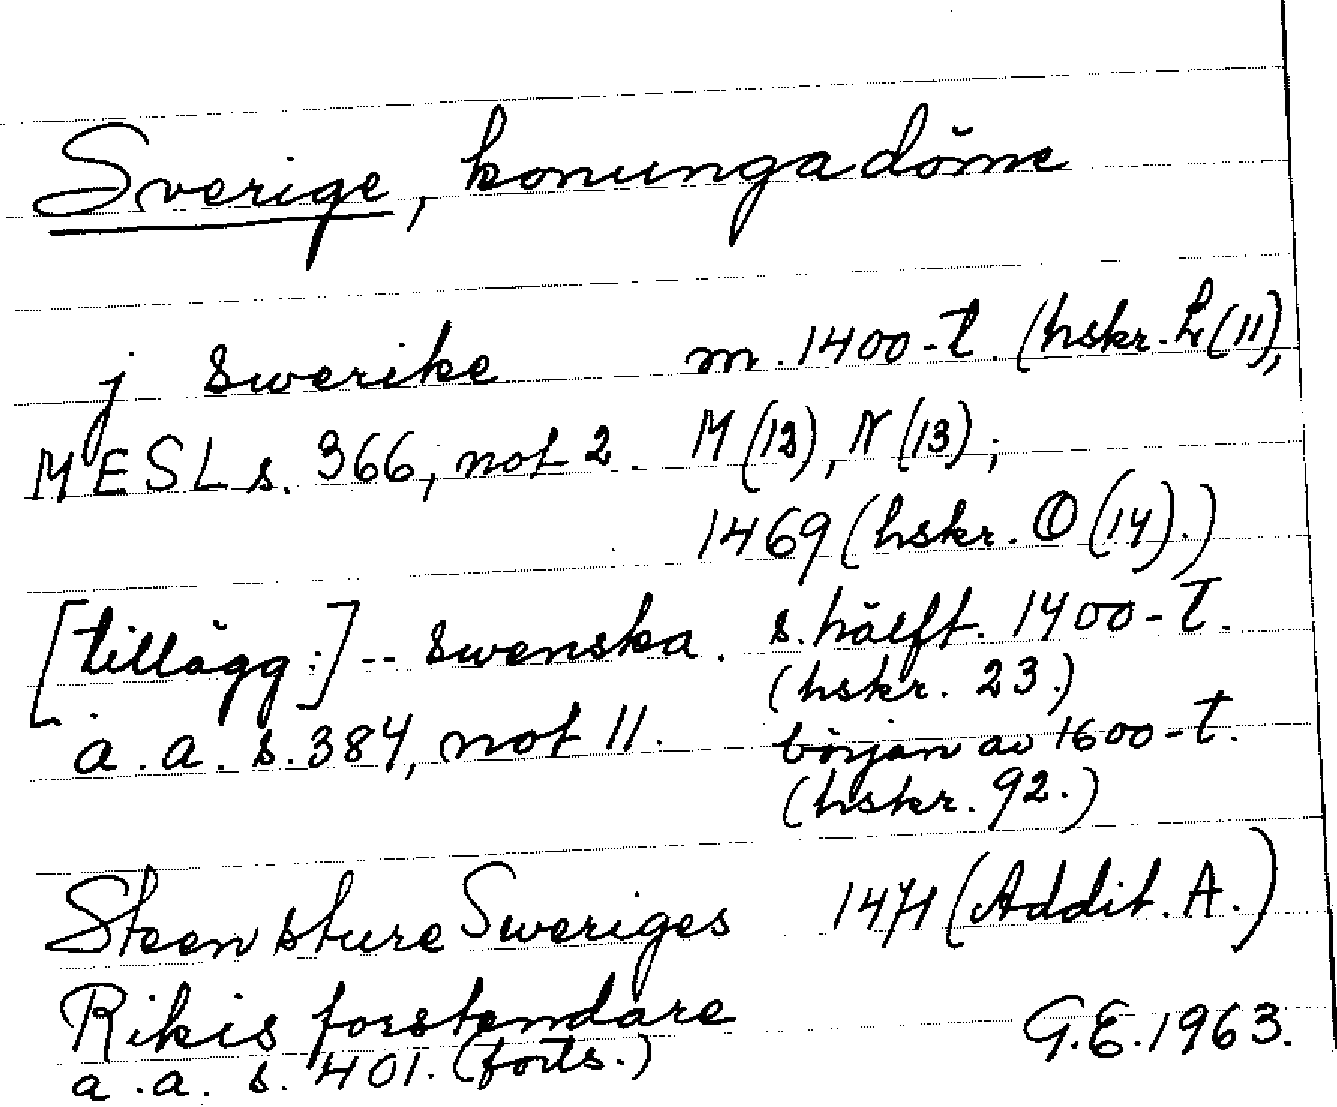 Sverige, konungadöme
j swerike m. 1400-t. (hskr. L (11),
MESL s. 366, not 2 M (12), N (13);
1469 (hskr. O (14).)
[tillägg:] -- swenska. s. hälft. 1400-t.
(hskr. 23.)
a.a. s. 384, not 11. början av 1600-t.
(hskr. 92.)
Steen sture Sweriges 1471 (Addit. A.)
Rikis forstendare
a.a. s. 401. (forts.) G.E. 1963.